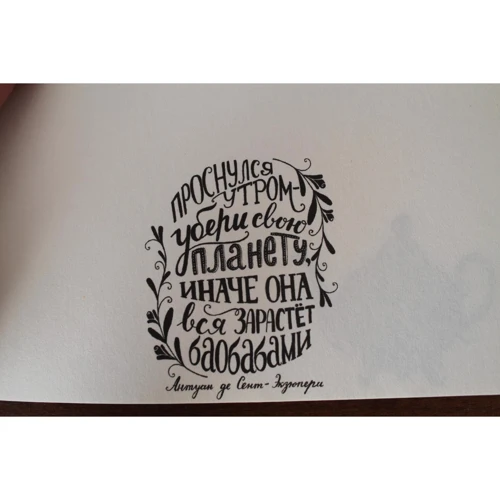 ПРОСНУЛСЯ
УТРОМ-
убери свою
планету,
ИНАЧЕ ОНА
вся ЗАРАСТЁТ
баобабами
Антуан де Сент-Экзюпери